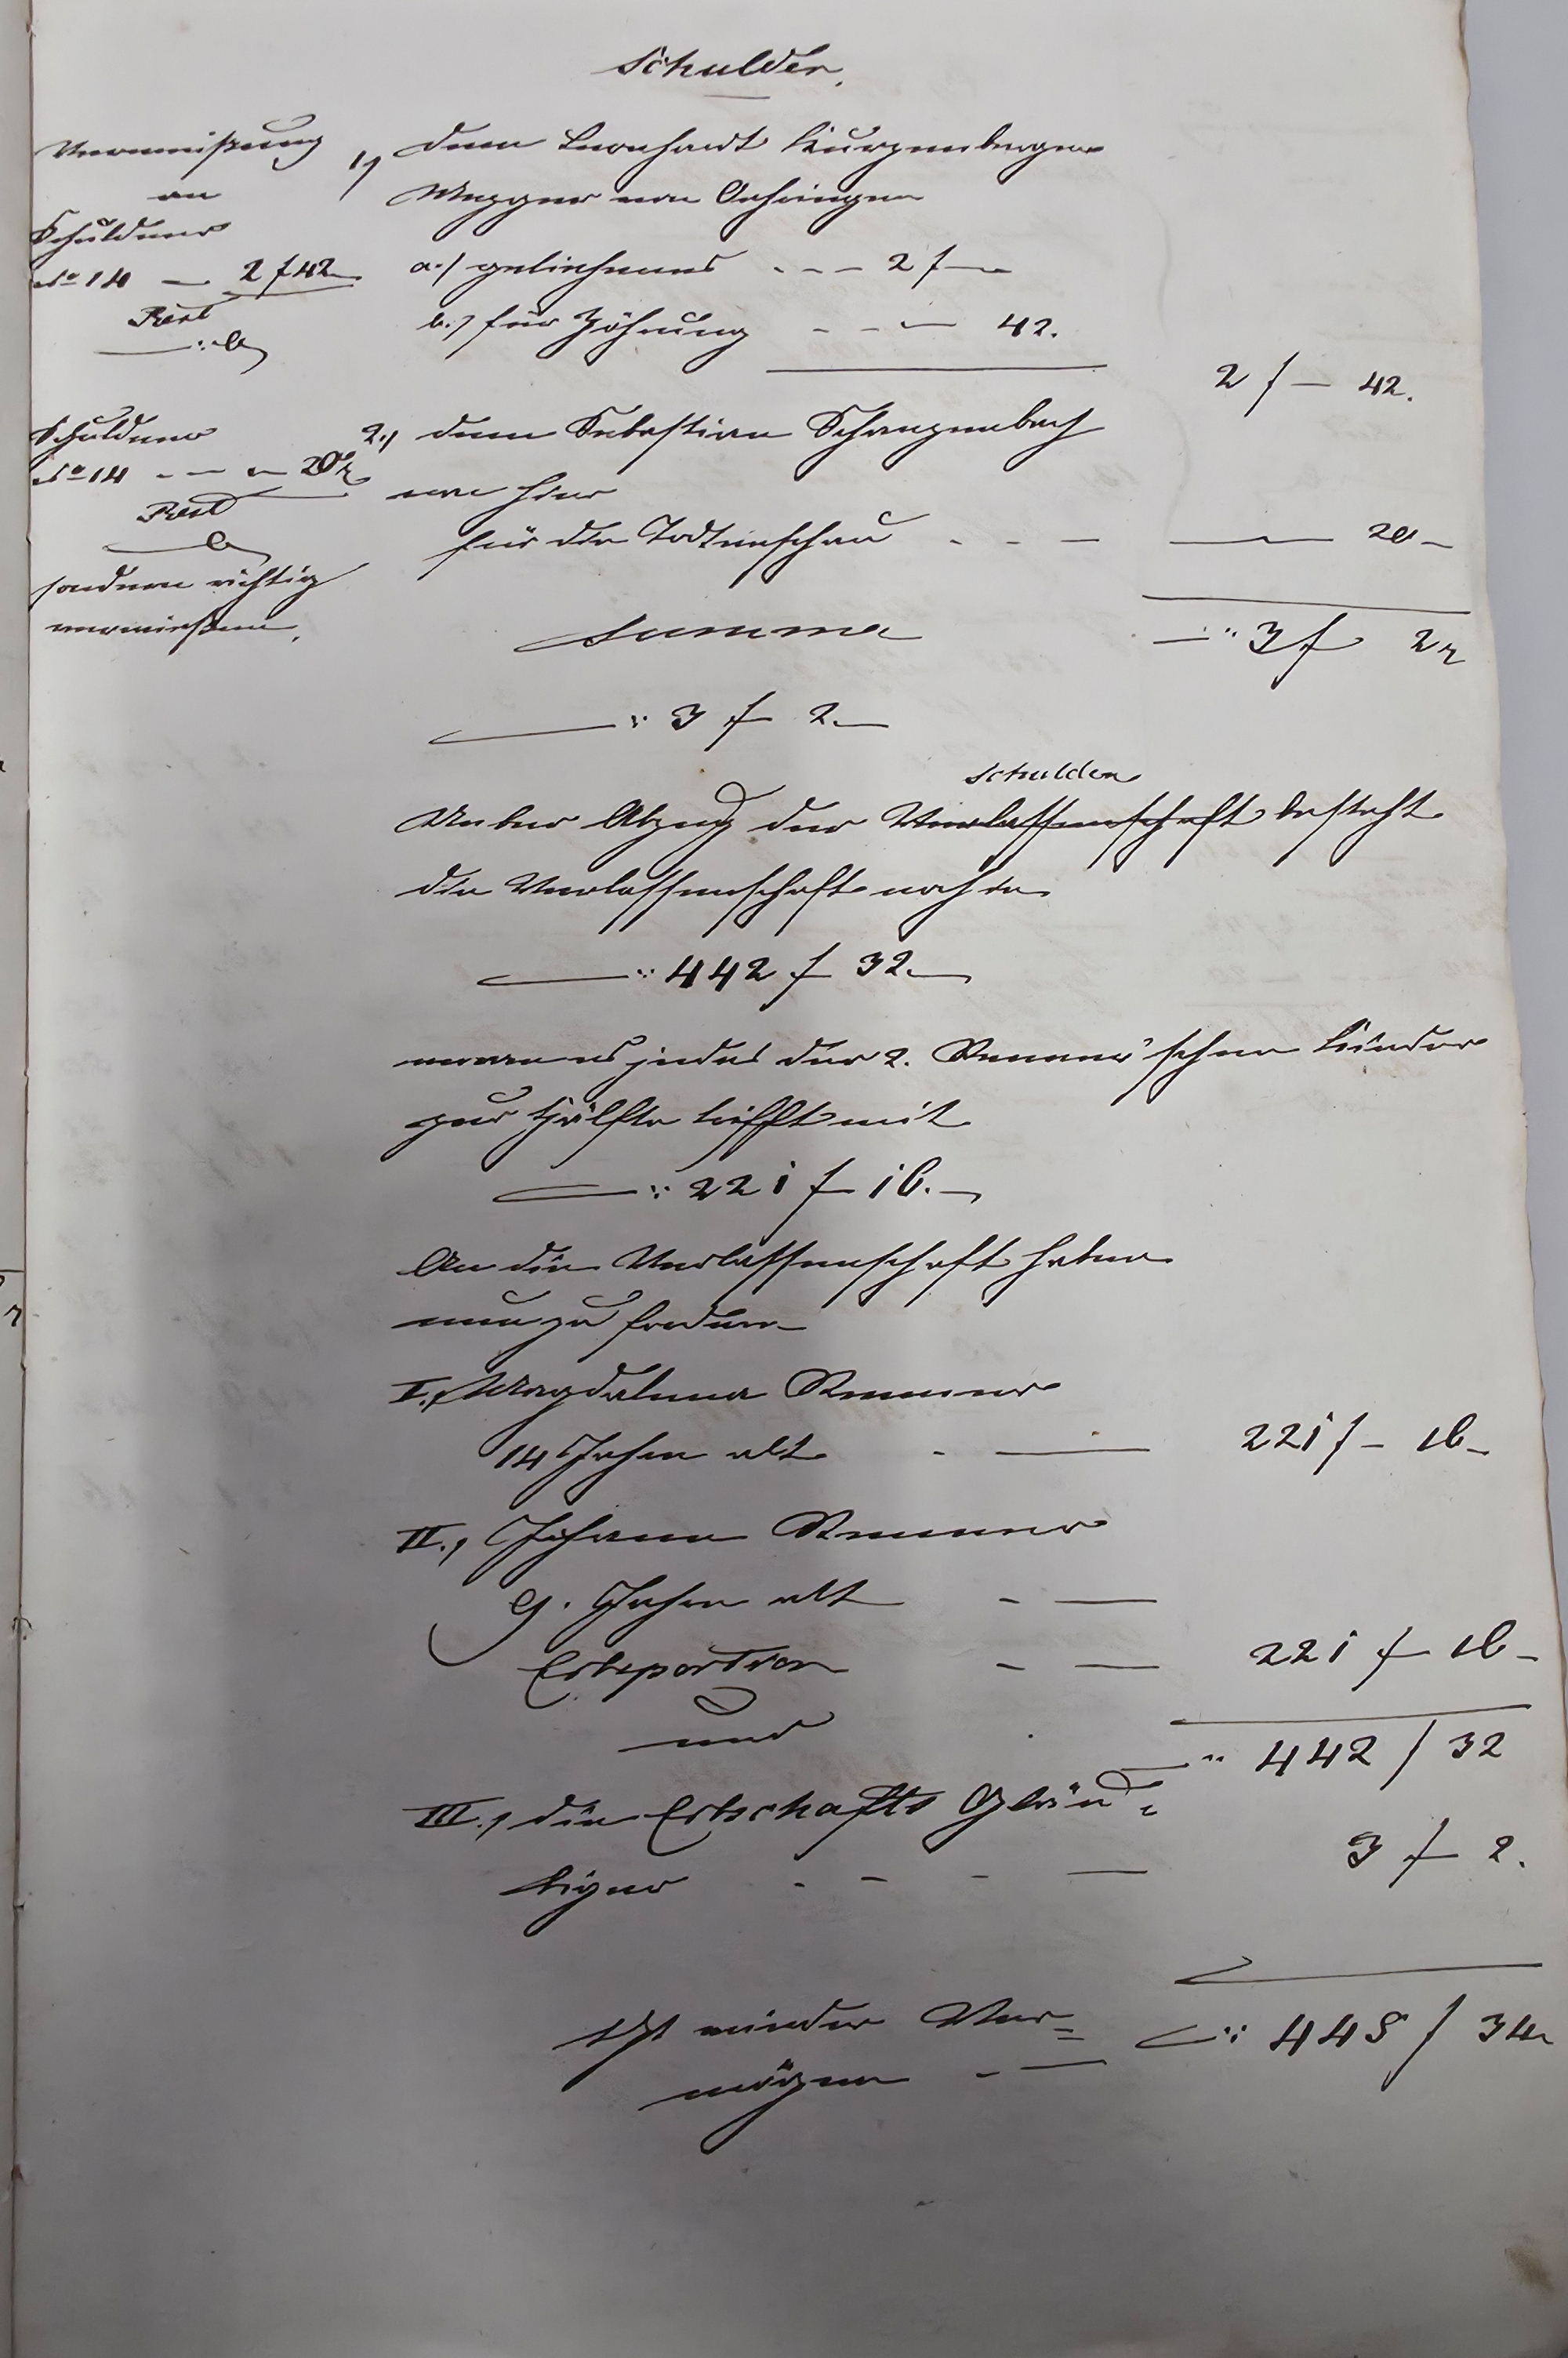 Schulden.
Verweisung
an
Schuldner
No 14 — 2 f 42
Rest
—:0
1) dem Leonhardt Kurzenberger
Metzger von Oehringen
a.) geliehenes - - - 2 f —
b.) für Zöhrung - - — 42.
2 f — 42.
Schuldner
No 14 - — - 20 kr
Rest
— 0
sondern richtig
verwiesen.
2.) dem Sebastian Schanzenbach
von hier
für die Todtenschau - - — — 20 —
Summa —:: 3 f 2 kr
—:: 3 f 2. —
Schulden
Ueber Abzug der Verlassenschaft besteht
die Verlassenschaft noch in
—:: 442 f 32. —
wovon es jedes der 2. Renner'schen Kinder
zur Hälfte trifft mit
—:: 221 f 16. —
An die Verlassenschaft haben
nun zu fordern
I., Magdalena Renner
14 Jahre alt - — 221 f — 16 —
II., Johann Renner
9. Jahre alt - —
Erbsportion - — 221 f 16 —
und
—:: 442 f 32
III., die Erbschafts Gläu=
biger - - - — 3 f 2.
Ist wieder Ver=
mögen - — —:: 445 f 34